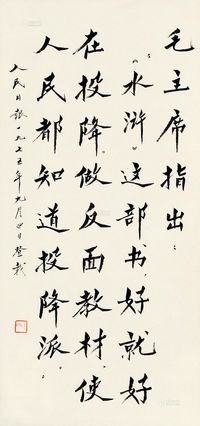 毛主席指出：
“水浒”这部书，好就好
在投降。做反面教材，使
人民都知道投降派。
人民日报一九七五年九月四日登载